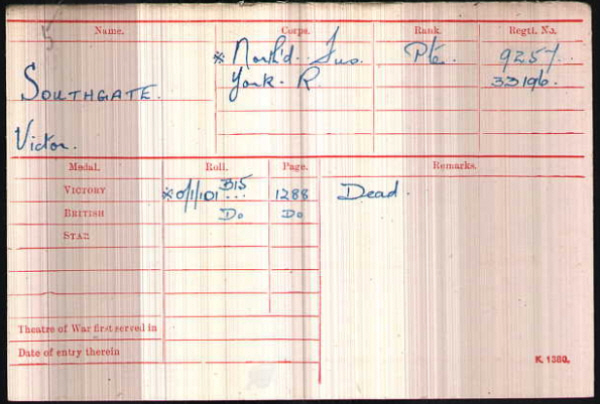 Name. Corps. Rank. Regtl. No.
SOUTHGATE. * North'd. Fus. Pte. 9257.
York. R 33196.
Victor.
Medal. Roll. Page. Remarks.
VICTORY *O/1/101 B15 1288 Dead.
BRITISH Do Do
STAR
Theatre of War first served in
Date of entry therein
K. 1380.